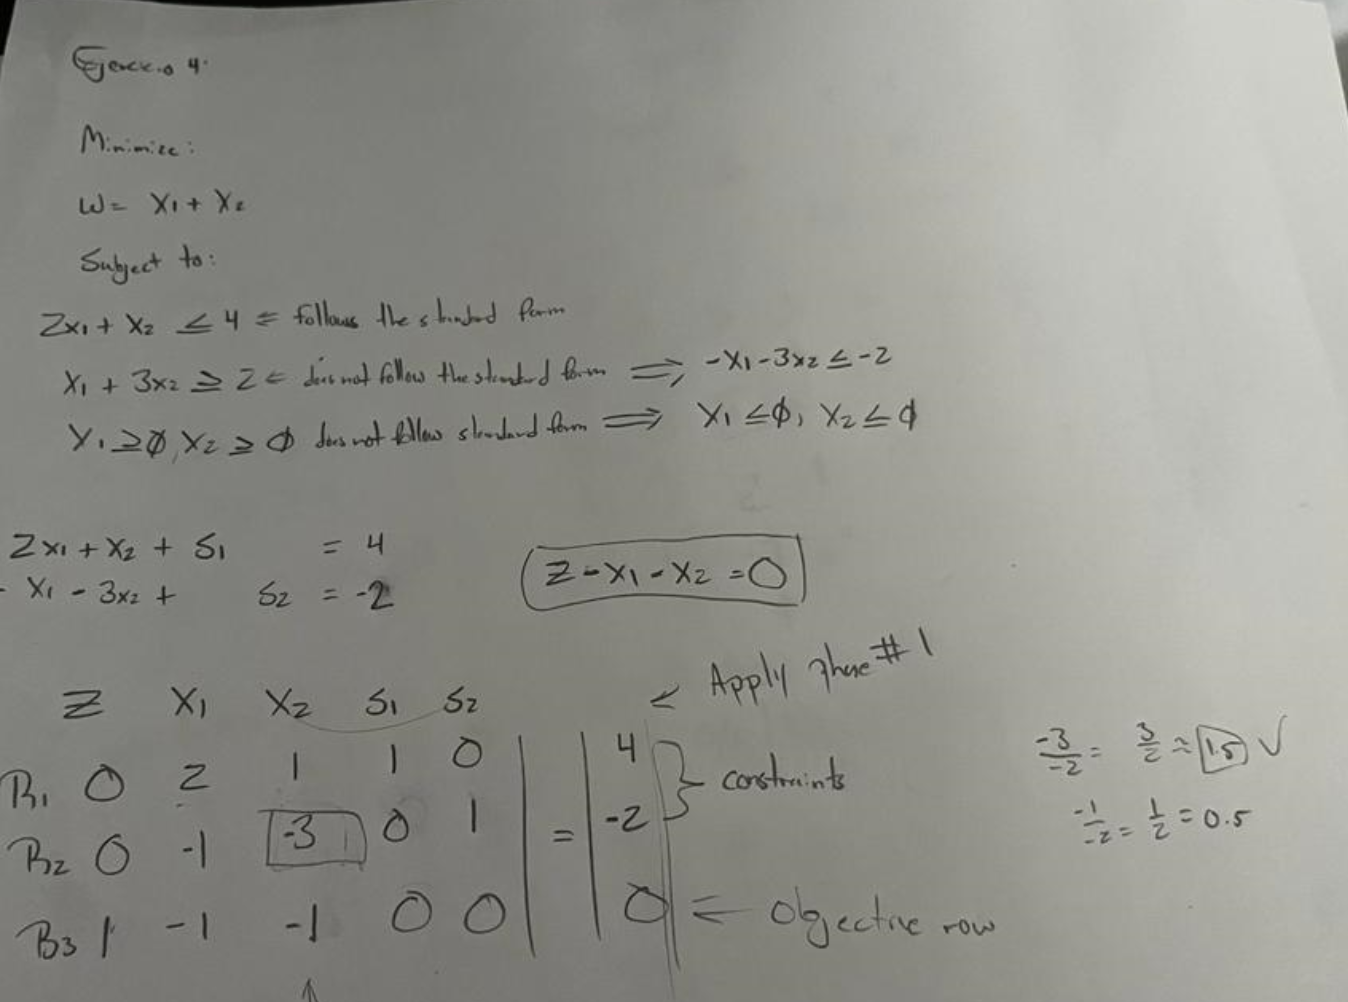 Ejercicio 4.
Minimize:
W= X1 + X2
Subject to:
2x1 + X2 ≤ 4 ⇐ follows the standard form
X1 + 3x2 ≥ 2 ⇐ does not follow the standard form ⟹ -X1 - 3x2 ≤ -2
X1 ≥ 0, X2 ≥ 0 does not follow standard form ⟹ X1 ≤ 0, X2 ≤ 0
2x1 + X2 + S1 = 4
- X1 - 3x2 + S2 = -2
Z - X1 - X2 = 0
← Apply phase #1
Z X1 X2 S1 S2
R1 0 2 1 1 0 | = | 4 } constraints
R2 0 -1 -3 0 1 | = | -2
R3 1 -1 -1 0 0 | | 0 ⇐ Objective row
↑
-3/-2 = 3/2 ≈ 1.5 ✓
-1/-2 = 1/2 = 0.5